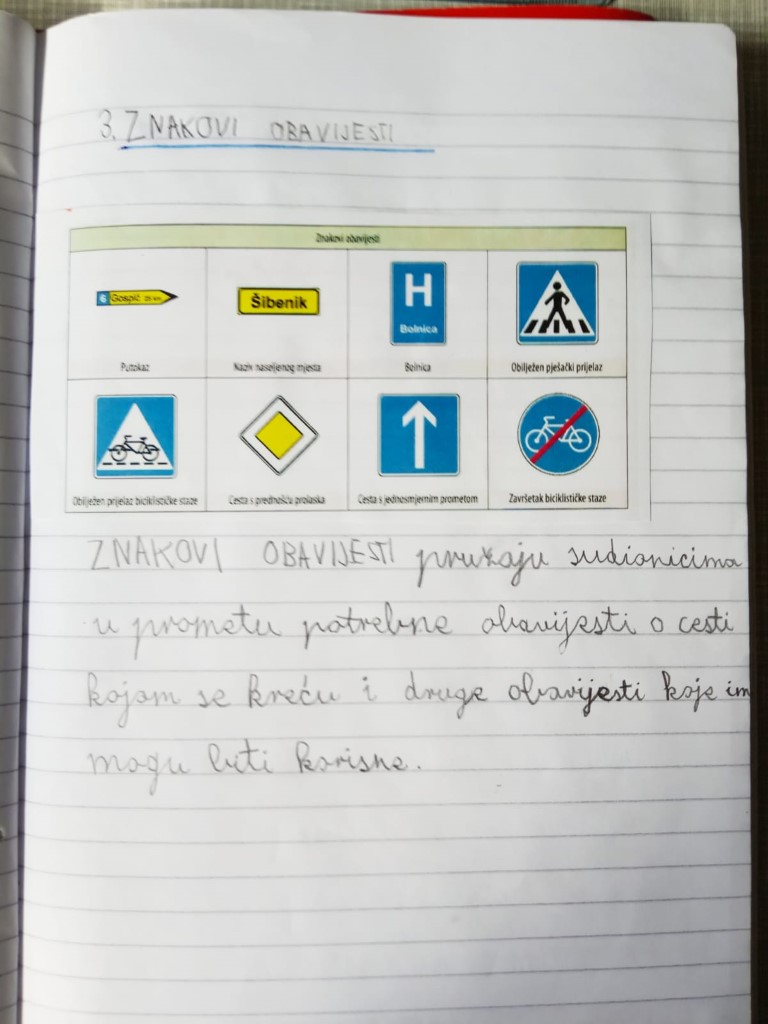 3. ZNAKOVI OBAVIJESTI
Znakovi obavijesti
Gospić 25 km
Šibenik
H
Bolnica
Putokaz
Naziv naseljenog mjesta
Bolnica
Obilježen pješački prijelaz
Obilježen prijelaz biciklističke staze
Cesta s prednošću prolaska
Cesta s jednosmjernim prometom
Završetak biciklističke staze
ZNAKOVI OBAVIJESTI pružaju sudionicima
u prometu potrebne obavijesti o cesti
kojom se kreću i druge obavijesti koje im
mogu biti korisne.